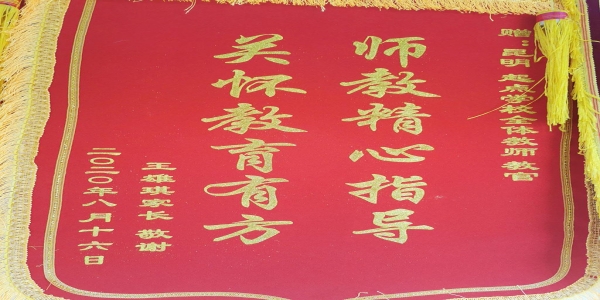 赠:昆明起点学校全体教师教官
师教精心指导
关怀教育有方
王雄琪家长 敬谢
二〇二〇年八月十六日